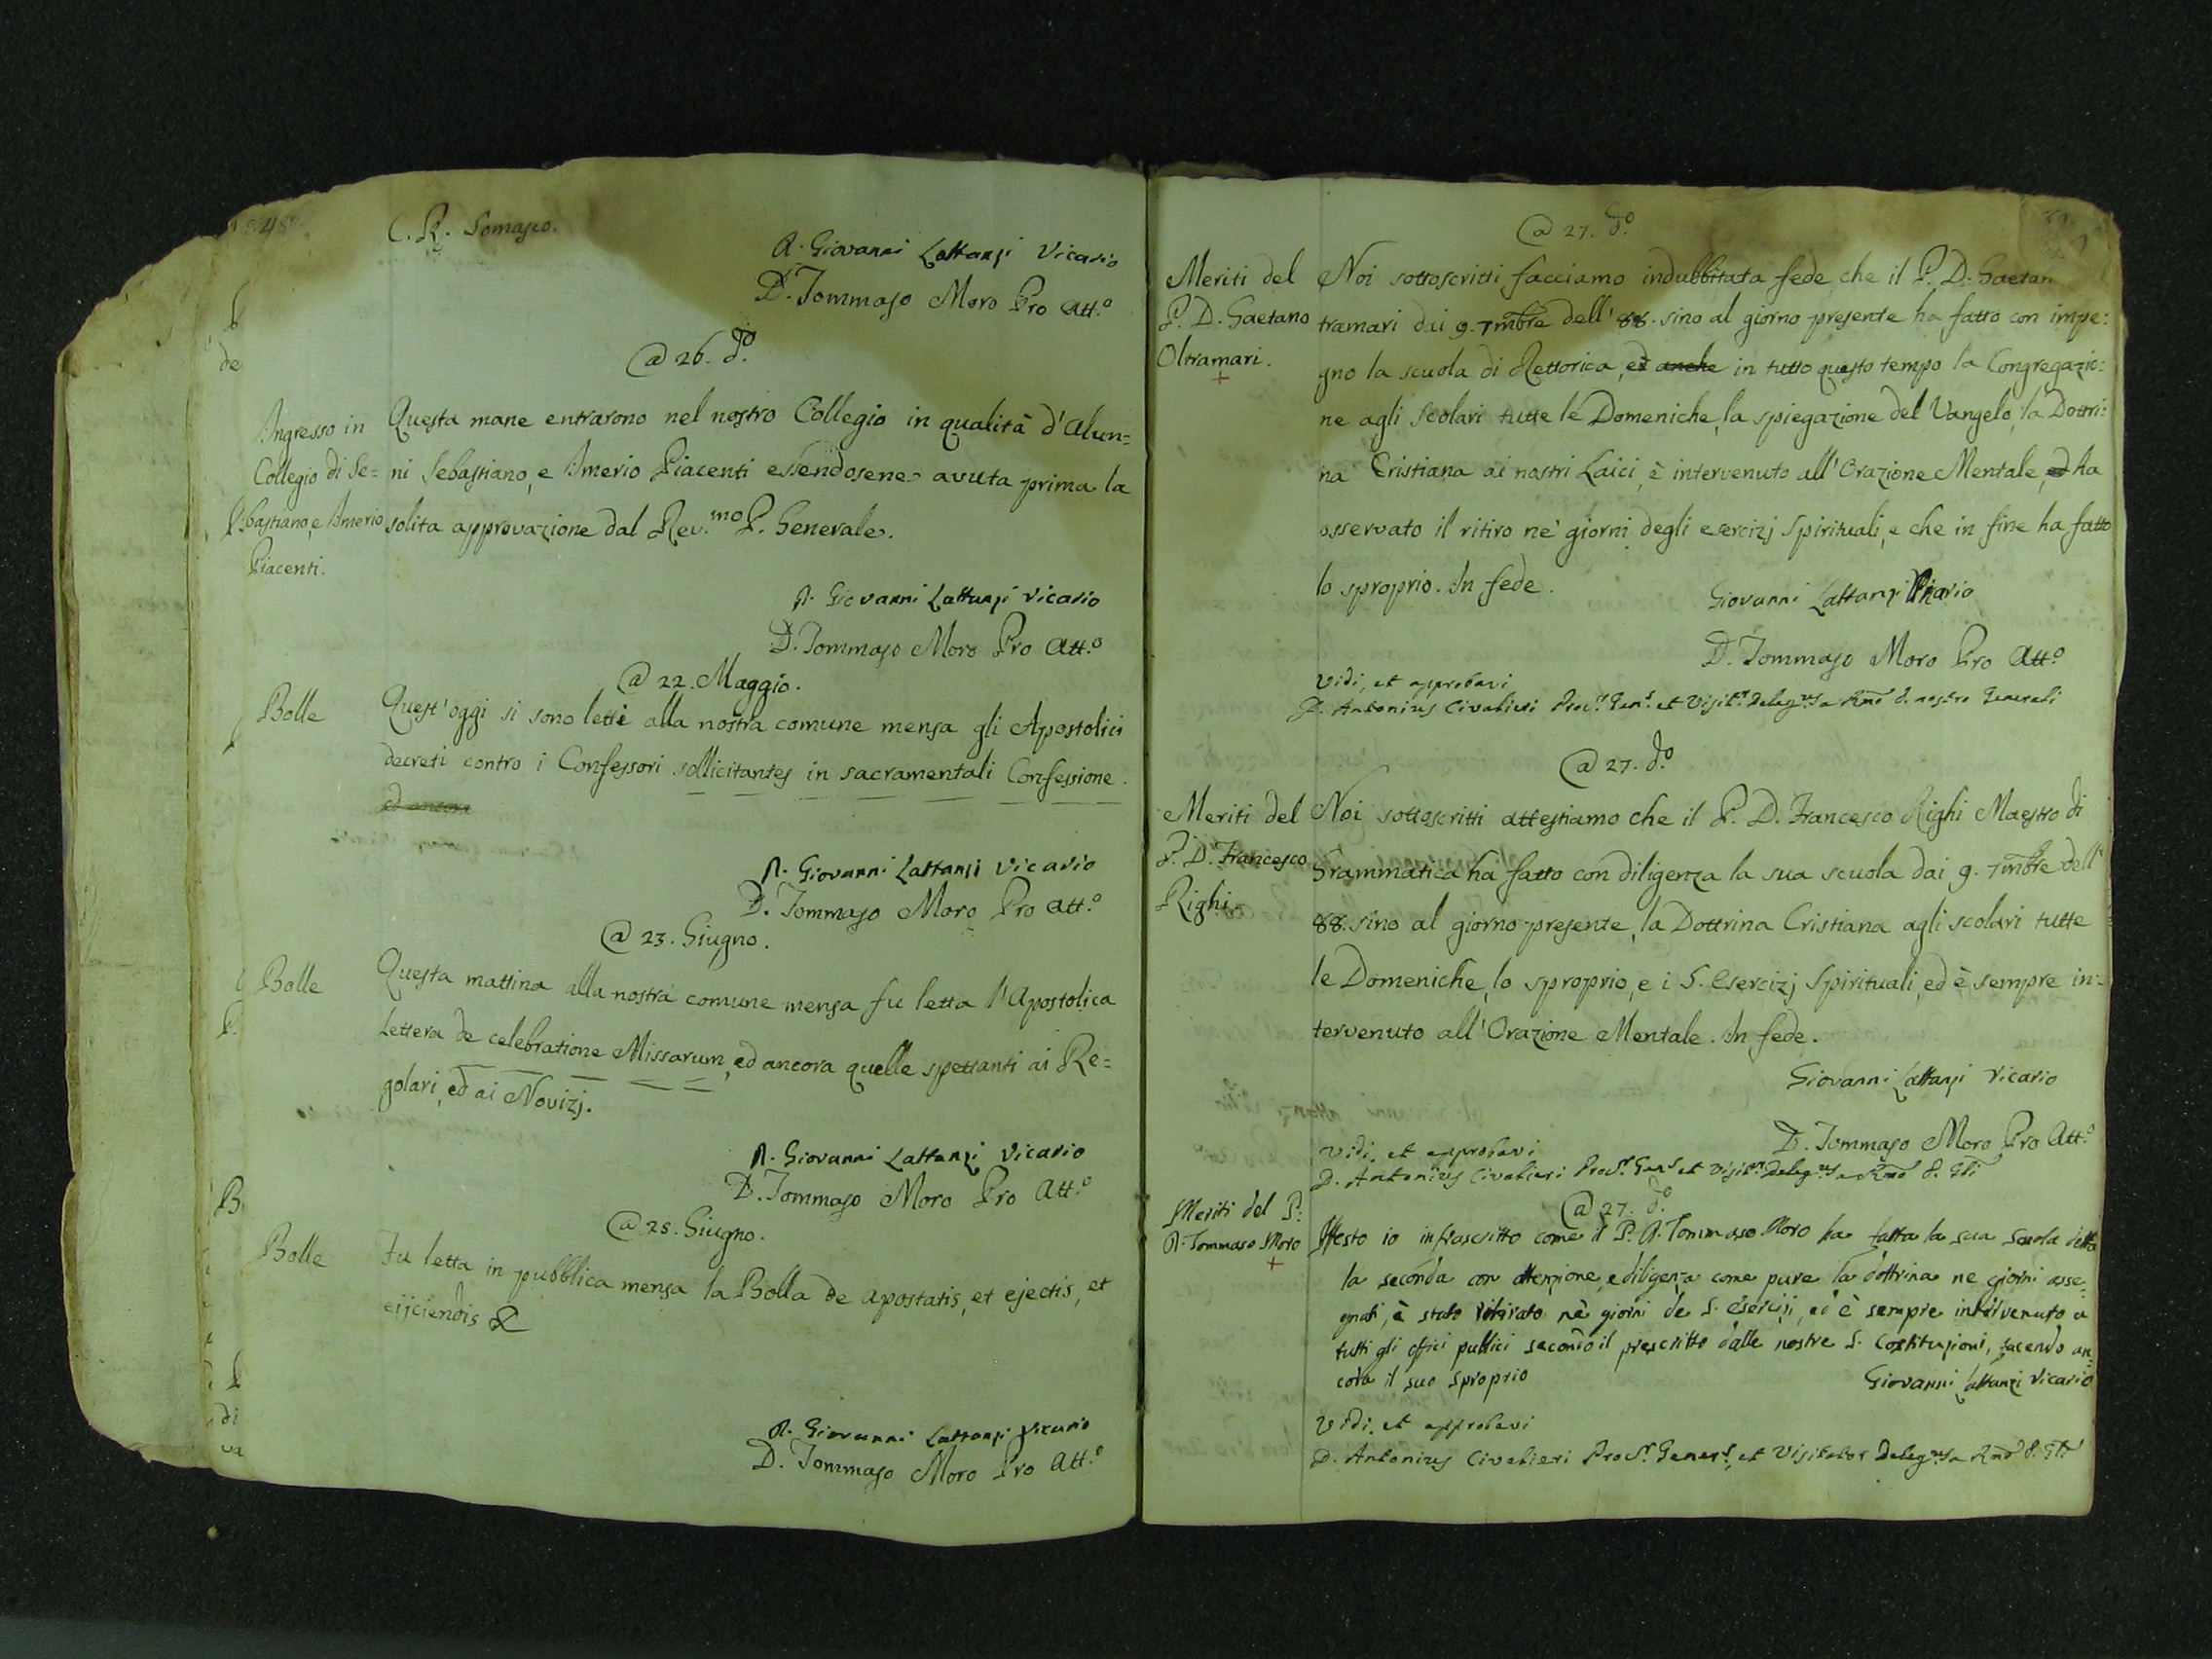 C. R. Somasco.
D. Giovanni Lattanzi Vicario
D. Tommaso Moro Pro Att.º
@ 26. d.º
Ingresso in
Collegio di Se=
bastiano, e Imerio
Piacenti.
Questa mane entrarono nel nostro Collegio in qualità d'Alun=
ni Sebastiano, e Imerio Piacenti essendosene avuta prima la
solita approvazione dal Rev.mo P. Generale.
D. Giovanni Lattanzi Vicario
D. Tommaso Moro Pro Att.º
@ 22. Maggio.
Bolle
Quest'oggi si sono letti alla nostra comune mensa gli Apostolici
decreti contro i Confessori sollicitantes in sacramentali Confessione.
ed ancora
D. Giovanni Lattanzi Vicario
D. Tommaso Moro Pro Att.º
@ 23. Giugno.
Bolle
Questa mattina alla nostra comune mensa fu letta l'Apostolica
Lettera de celebratione Missarum, ed ancora quelle spettanti ai Re=
golari, ed ai Novizj.
D. Giovanni Lattanzi Vicario
D. Tommaso Moro Pro Att.º
@ 25. Giugno.
Bolle
Fu letta in pubblica mensa la Bolla de apostatis, et ejectis, et
eijciendis &
D. Giovanni Lattanzi Vicario
D. Tommaso Moro Pro Att.º
@ 27. d.º
Meriti del
P. D. Gaetano
Oltramari.
Noi sottoscritti facciamo indubbitata fede che il P. D. Gaetan
tramari dai 9. 7mbre dell' 88. sino al giorno presente ha fatto con impe:
gno la scuola di Rettorica, ed anche in tutto questo tempo la Congregazio:
ne agli scolari tutte le Domeniche, la spiegazione del Vangelo, la Dottri:
na Cristiana ai nostri Laici, è intervenuto all'Orazione Mentale, ed ha
osservato il ritiro ne' giorni degli esercizj Spirituali, e che in fine ha fatto
lo sproprio. In fede.
Giovanni Lattanzi Vicario
D. Tommaso Moro Pro Att.º
Vidi, et approbavi
D. Antonius Civalieri Proc.r Gen.s et Visit.r Deleg.us a Rmo P. nostro Generali
@ 27. d.º
Meriti del
P. D. Francesco
Righi.
Noi sottoscritti attestiamo che il P. D. Francesco Righi Maestro di
Grammatica ha fatto con diligenza la sua scuola dai 9. 7mbre dell'
88. sino al giorno presente, la Dottrina Cristiana agli scolari tutte
le Domeniche, lo sproprio, e i S. Esercizj Spirituali, ed è sempre in=
tervenuto all'Orazione Mentale. In fede.
Giovanni Lattanzi Vicario
D. Tommaso Moro Pro Att.º
Vidi, et approbavi
D. Antonius Civalieri Proc.r Gen.s et Visit.r Deleg.us a Rmo P. Gli
@ 27. d.º
Meriti del P:
D. Tommaso Moro
Attesto io infrascritto come il P. D. Tommaso Moro ha fatta la sua scuola detta
la seconda con attenzione, e diligenza come pure la dottrina ne giorni asse-
gnati, è stato ritirato nè giorni de S. esercizj, ed è sempre intervenuto a
tutti gli offici publici secondo il prescritto dalle nostre S. Costituzioni, facendo an-
cora il suo sproprio
Giovanni Lattanzi Vicario
Vidi, et approbavi
D. Antonius Civalieri Proc.r Gener.s, et Visitator Deleg.us a Rmo P. Gli